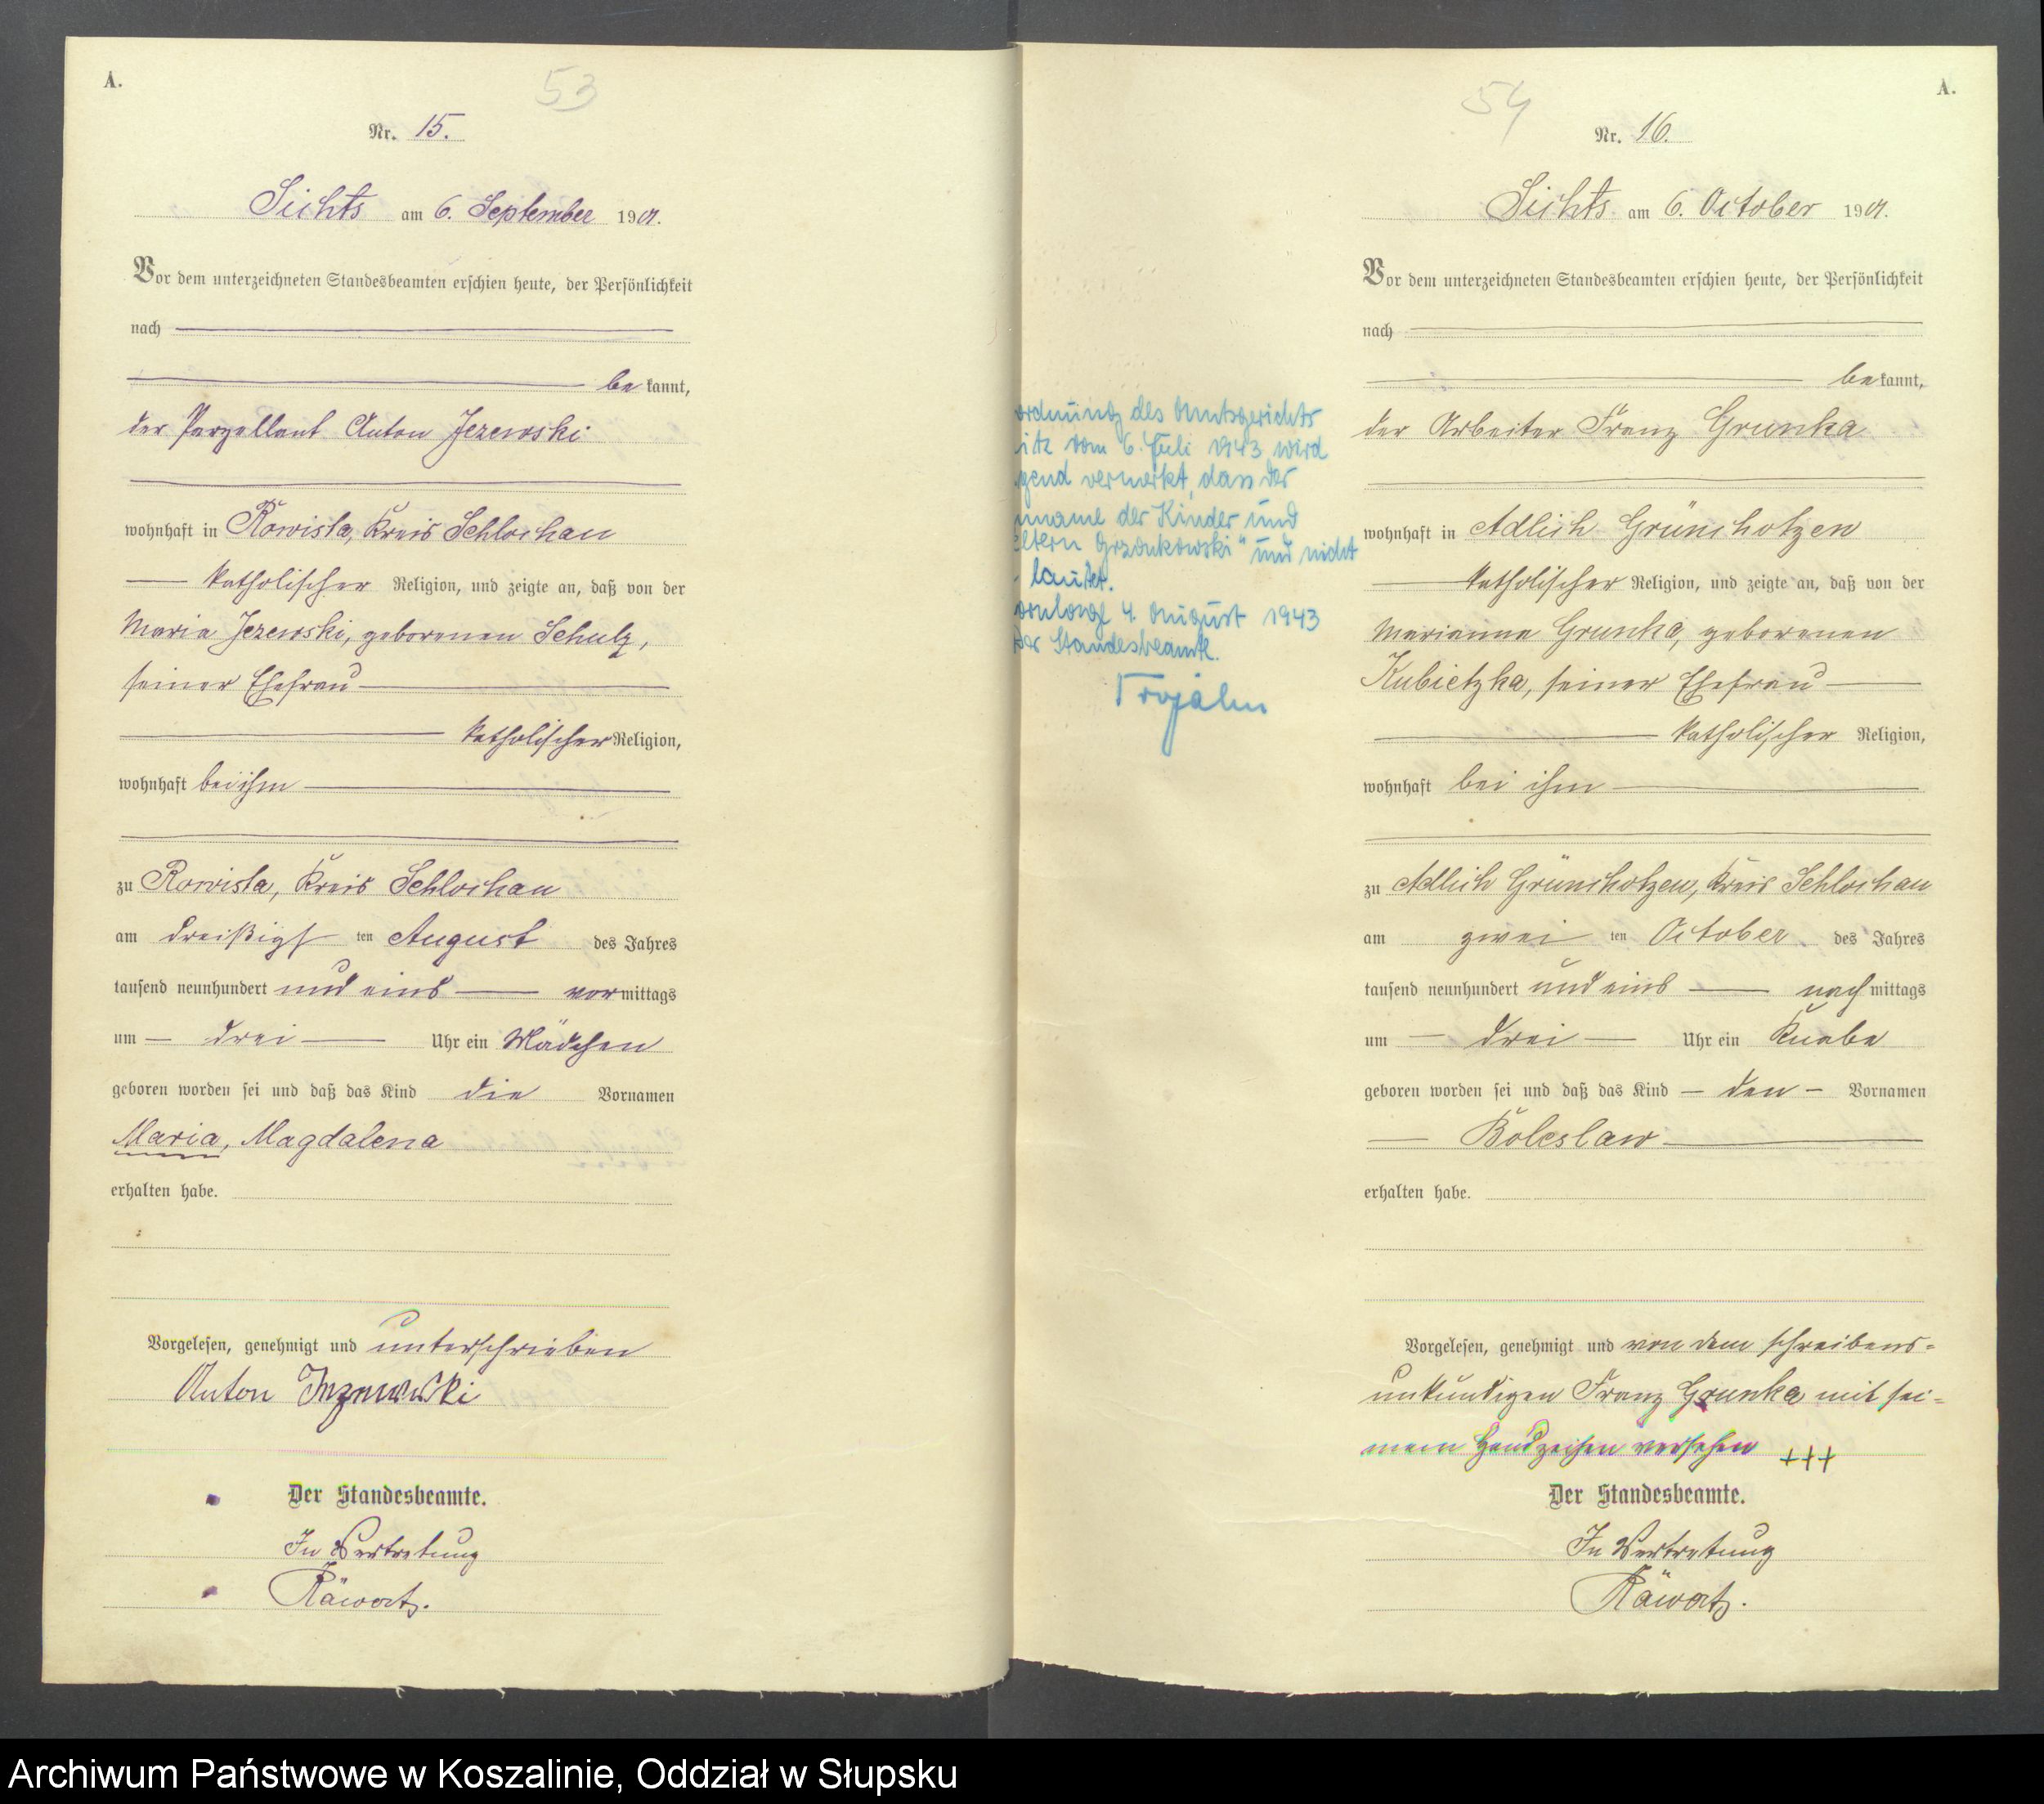 A.
53
Nr. 15.
Sichts am 6. September 1901.
Vor dem unterzeichneten Standesbeamten erschien heute, der Persönlichkeit
nach
be kannt,
der Parzellant Anton Jezewski
wohnhaft in Rowista, Kreis Schlochau
katholischer Religion, und zeigte an, daß von der
Maria Jezewski, geborenen Schulz,
seiner Ehefrau
katholischer Religion,
wohnhaft bei ihm
zu Rowista, Kreis Schlochau
am dreißigs ten August des Jahres
tausend neunhundert und eins vor mittags
um drei Uhr ein Mädchen
geboren worden sei und daß das Kind die Vornamen
Maria, Magdalena
erhalten habe.
Vorgelesen, genehmigt und unterschrieben
Anton
Der Standesbeamte.
In Vertretung
Räwartz.
ordnung des Amtsgerichts
itz vom 6. Juli 1943 wird
gend vermerkt, dass der
name der Kinder und
eltern Grzonkowski" und nicht
lautet.
4. August 1943
Der Standesbeamte.
Trojahn
A.
54
Nr. 16.
Sichts am 6. October 1901.
Vor dem unterzeichneten Standesbeamten erschien heute, der Persönlichkeit
nach
be kannt,
der Arbeiter Franz Grunka
wohnhaft in Adlich Grünchotzen
katholischer Religion, und zeigte an, daß von der
Marianna Grunka, geborenen
Kubietzka, seiner Ehefrau
katholischer Religion,
wohnhaft bei ihm
zu Adlich Grünchotzen, Kreis Schlochau
am zwei ten October des Jahres
tausend neunhundert und eins nach mittags
um drei Uhr ein Knabe
geboren worden sei und daß das Kind den Vornamen
Boleslaw
erhalten habe.
Vorgelesen, genehmigt und von dem schreibens-
unkundigen Franz Grunka mit sei-
nem Handzeichen versehen +++
Der Standesbeamte.
In Vertretung
Räwartz.
Archiwum Państwowe w Koszalinie, Oddział w Słupsku